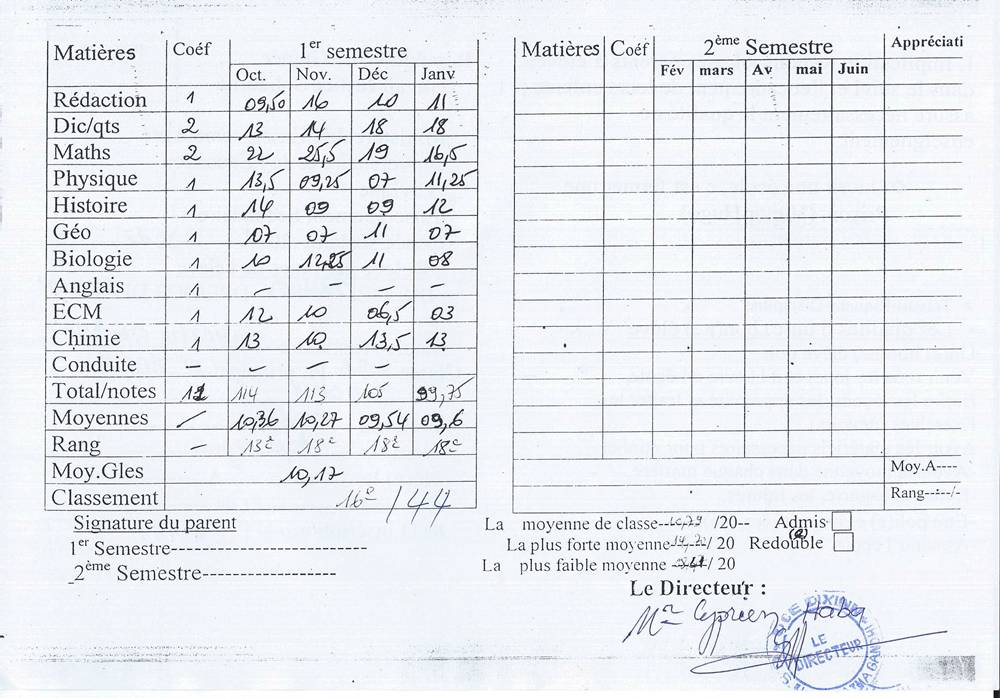 Matières Coéf 1er semestre
Oct. Nov. Déc Janv
Rédaction 1 09,50 16 10 11
Dic/qts 2 13 14 18 18
Maths 2 22 25,5 19 16,5
Physique 1 13,5 09,25 07 11,25
Histoire 1 14 09 09 12
Géo 1 07 07 11 07
Biologie 1 10 12,25 11 08
Anglais 1 – – – –
ECM 1 12 10 06,5 03
Chimie 1 13 10 13,5 13
Conduite – – – –
Total/notes 114 113 105 99,75
Moyennes / 10,36 10,27 09,54 09,6
Rang – 13e 18e 18e 18e
Moy.Gles 10,17
Classement 16e/44
Signature du parent
1er Semestre------------------------
2ème Semestre-----------------
Matières Coéf 2ème Semestre Appréciati
Fév mars Av mai Juin
Moy.A----
Rang----/-
La moyenne de classe-- /20-- Admis
La plus forte moyenne-- / 20 Redouble (e)
La plus faible moyenne -- / 20
Le Directeur :
Mr Cyprien Haba
DIXINN
LE
DIRECTEUR